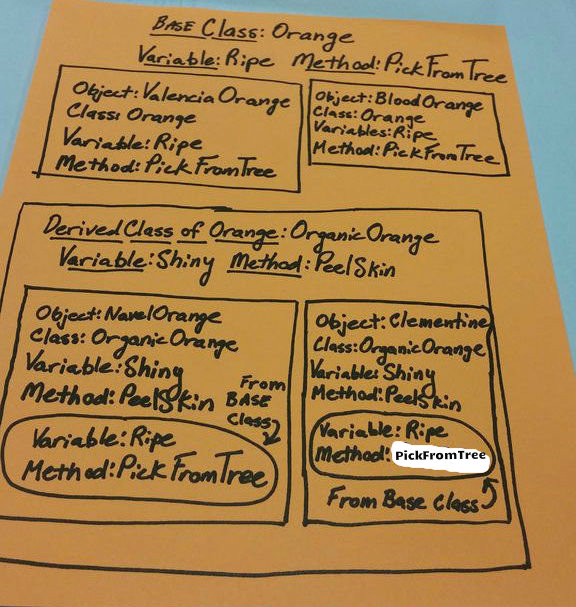 Base Class: Orange
Variable: Ripe Method: PickFromTree
Object: Valencia Orange
Class: Orange
Variable: Ripe
Method: PickFromTree
Object: Blood Orange
Class: Orange
Variables: Ripe
Method: PickFromTree
Derived Class of Orange: OrganicOrange
Variable: Shiny Method: PeelSkin
Object: NavelOrange
Class: OrganicOrange
Variable: Shiny
Method: PeelSkin
From
BASE
Class
Variable: Ripe
Method: PickFromTree
Object: Clementine
Class: OrganicOrange
Variable: Shiny
Method: PeelSkin
Variable: Ripe
Method: PickFromTree
From Base Class